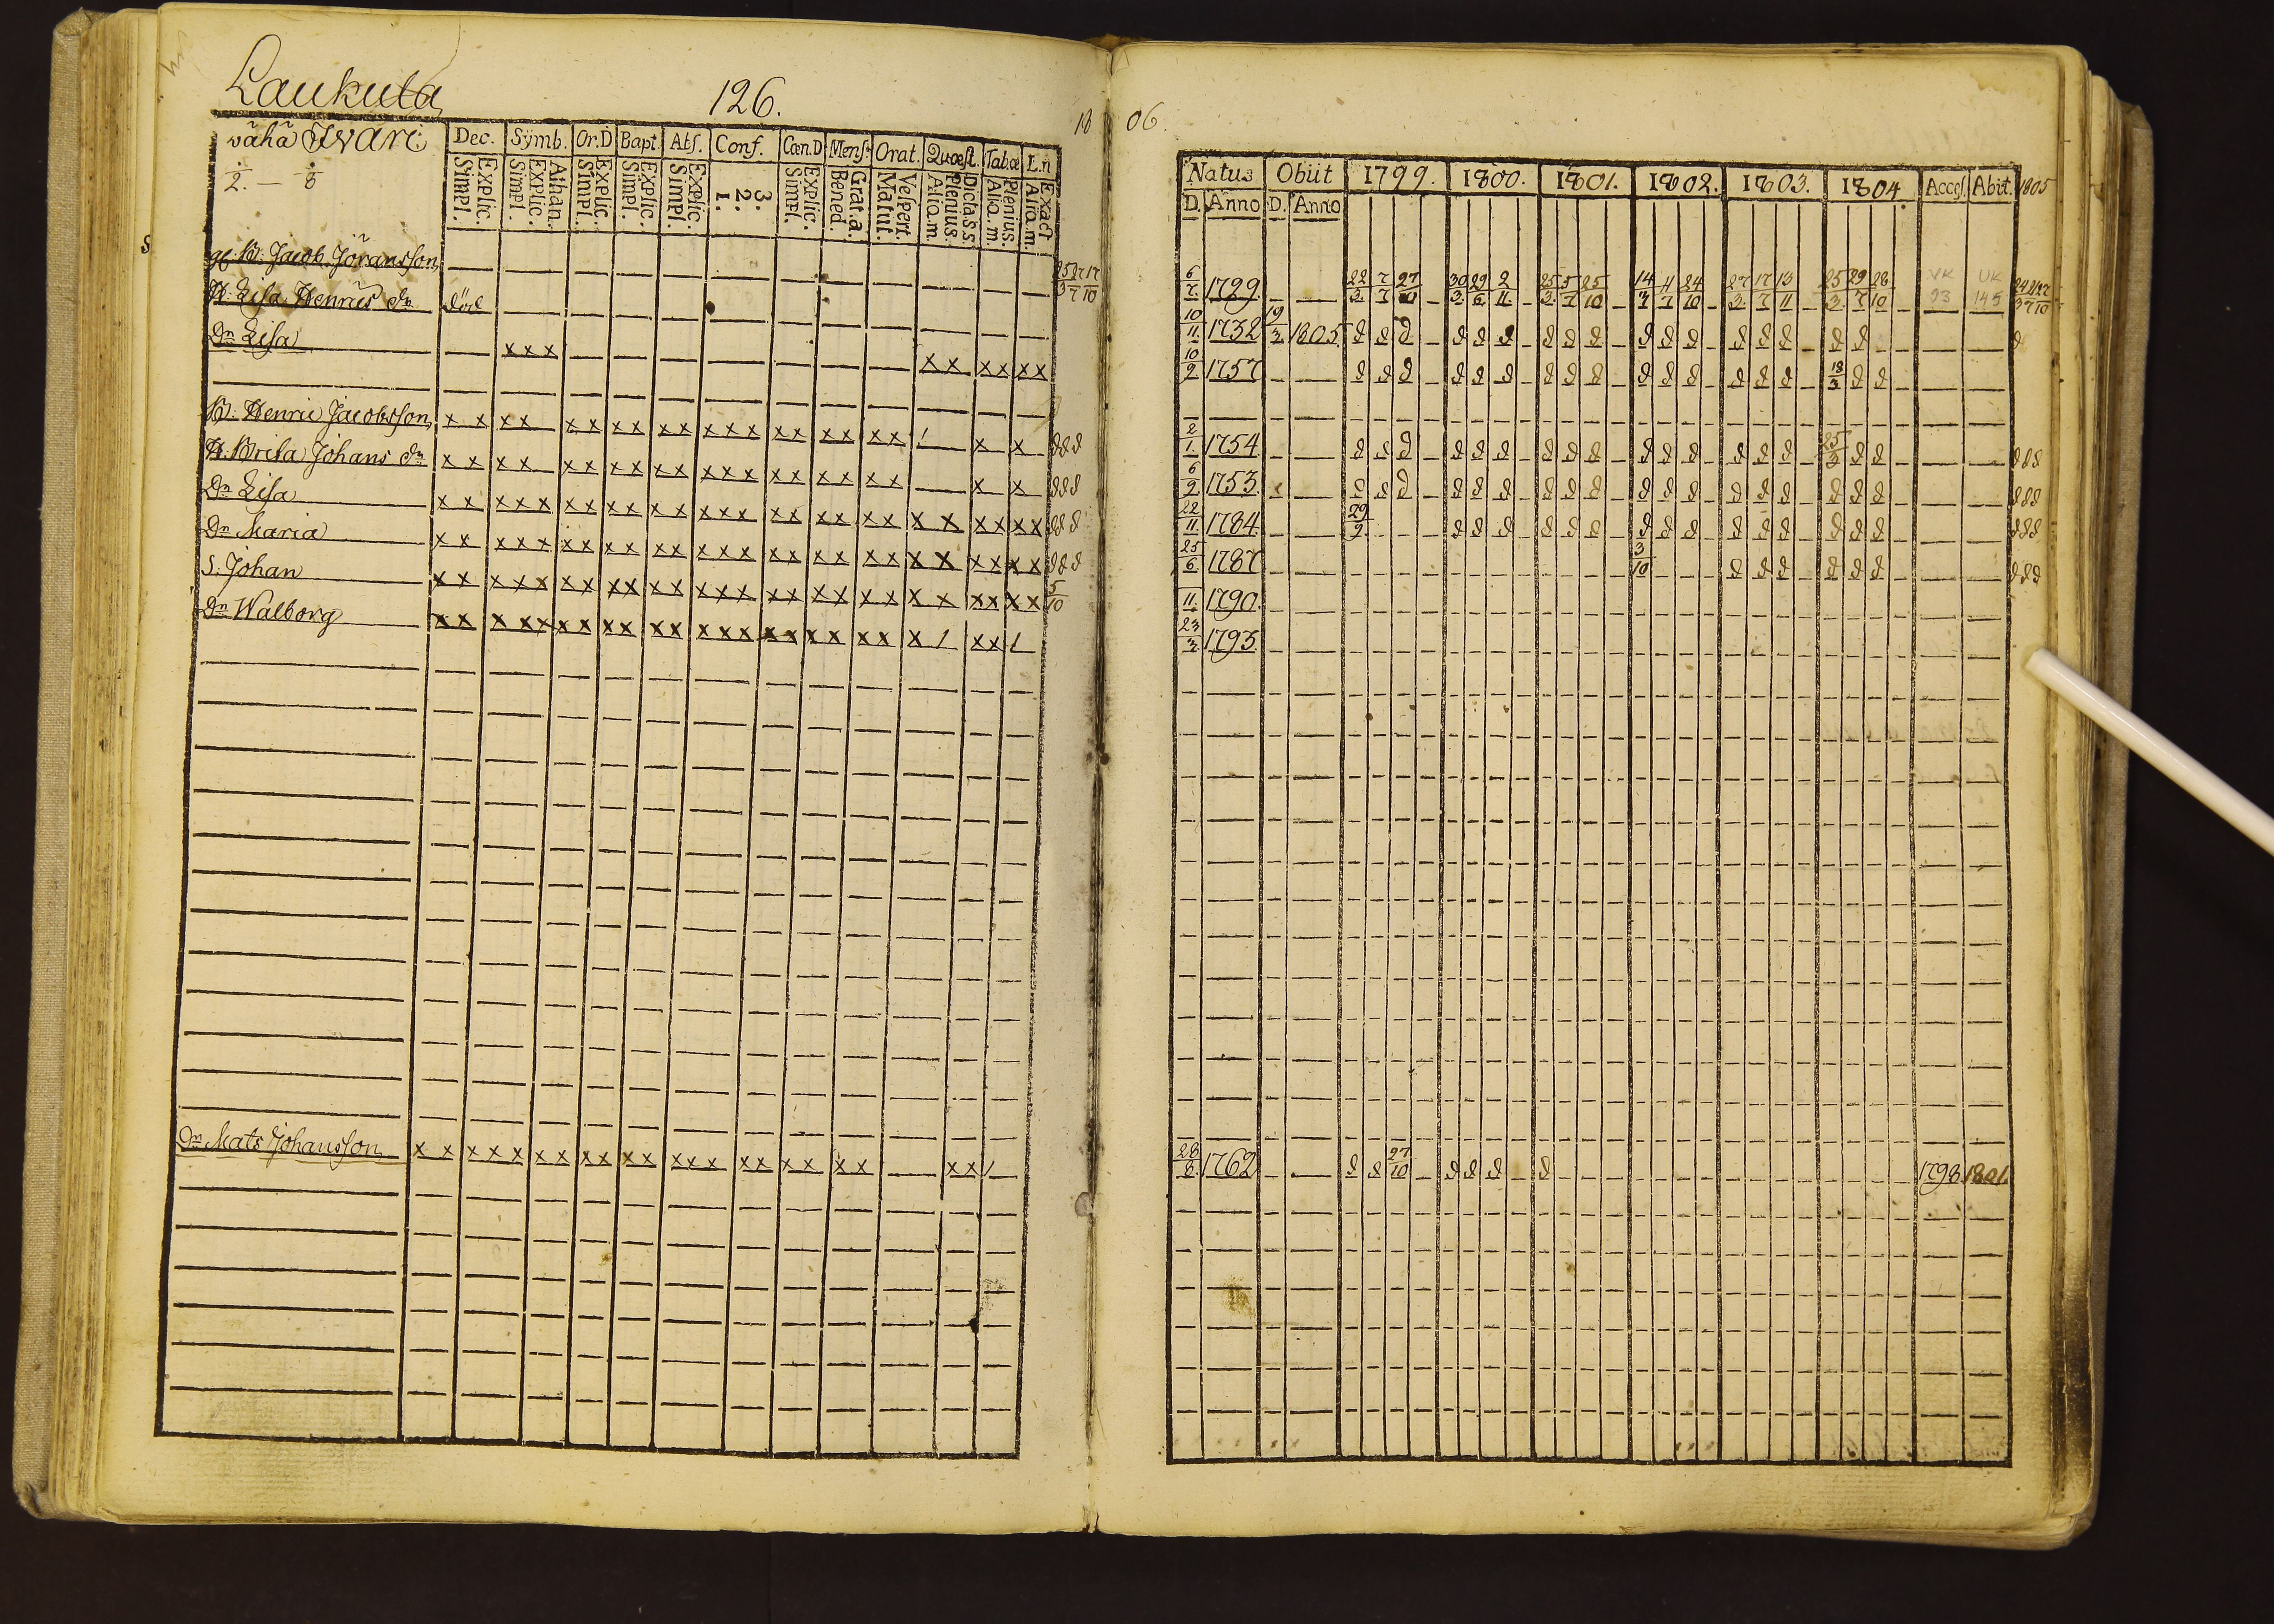 Laukula 126. 18 06.
wähä Iwari
1/2. — 1/8
Dec. Sÿmb. Or.D Bapt. Abs. Conf. Cœn.D Mens. Orat. Quæst. Tabæ L.n
Explic. Simpl. Athan. Explic. Simpl. Explic. Simpl. Explic. Simpl. Explic. Simpl. 3. 2. 1. Explic. Simpl. Grat.a. Bened. Vespert. Matut. Dicta.s.s. Plenius. Alio.m. Plenius. Alio.m. Exact Alio.m.
Natus Obiit 1799. 1800. 1801. 1802. 1803. 1804. Access. Abiit. 1805
D. Anno D. Anno
B. Jacob Jöransson 25/3 27/7 17/10 6/7. 1729. 22/3 7/7 27/10 30/3 29/6 2/11 25/3 5/7 25/10 14/3 4/7 24/10 27/3 17/7 13/11 25/3 29/7 28/10 UK 93 UK 145
H. Lisa Henrics dr död 10/11 1732 19/3 1805. d d d d d d d d d d d d d d d d d d
Dr Lisa x x x x x x x x x 10/2 1757 d d d d d d d d d d d d d d d 18/3 d d
B. Henric Jacobsson x x x x x x x x x x x x x x x x x x x 1 x x d d d 2/1. 1754 d d d d d d d d d d d d d d d 25/3 d d d d d
H. Brita Johans dr x x x x x x x x x x x x x x x x x x x x x d d d 6/2 1753. d d d d d d d d d d d d d d d d d d d d d
Dr Lisa x x x x x x x x x x x x x x x x x x x x x x x x x x d d d 22/11 1784. 29/9 d d d d d d d d d d d d d d d d d d
Dr Maria x x x x x x x x x x x x x x x x x x x x x x x x x x d d d 25/6 1787 3/10 d d d d d d d d d
S. Johan x x x x x x x x x x x x x x x x x x x x x x x x x x 5/10 11 1790.
Dr Walborg x x x x x x x x x x x x x x x x x x x x x 1 x x 1 23/3 1793.
Dr Mats Johansson x x x x x x x x x x x x x x x x x x x x x x 1 28/8. 1762 d d 27/10 d d d d 1798. 1801.